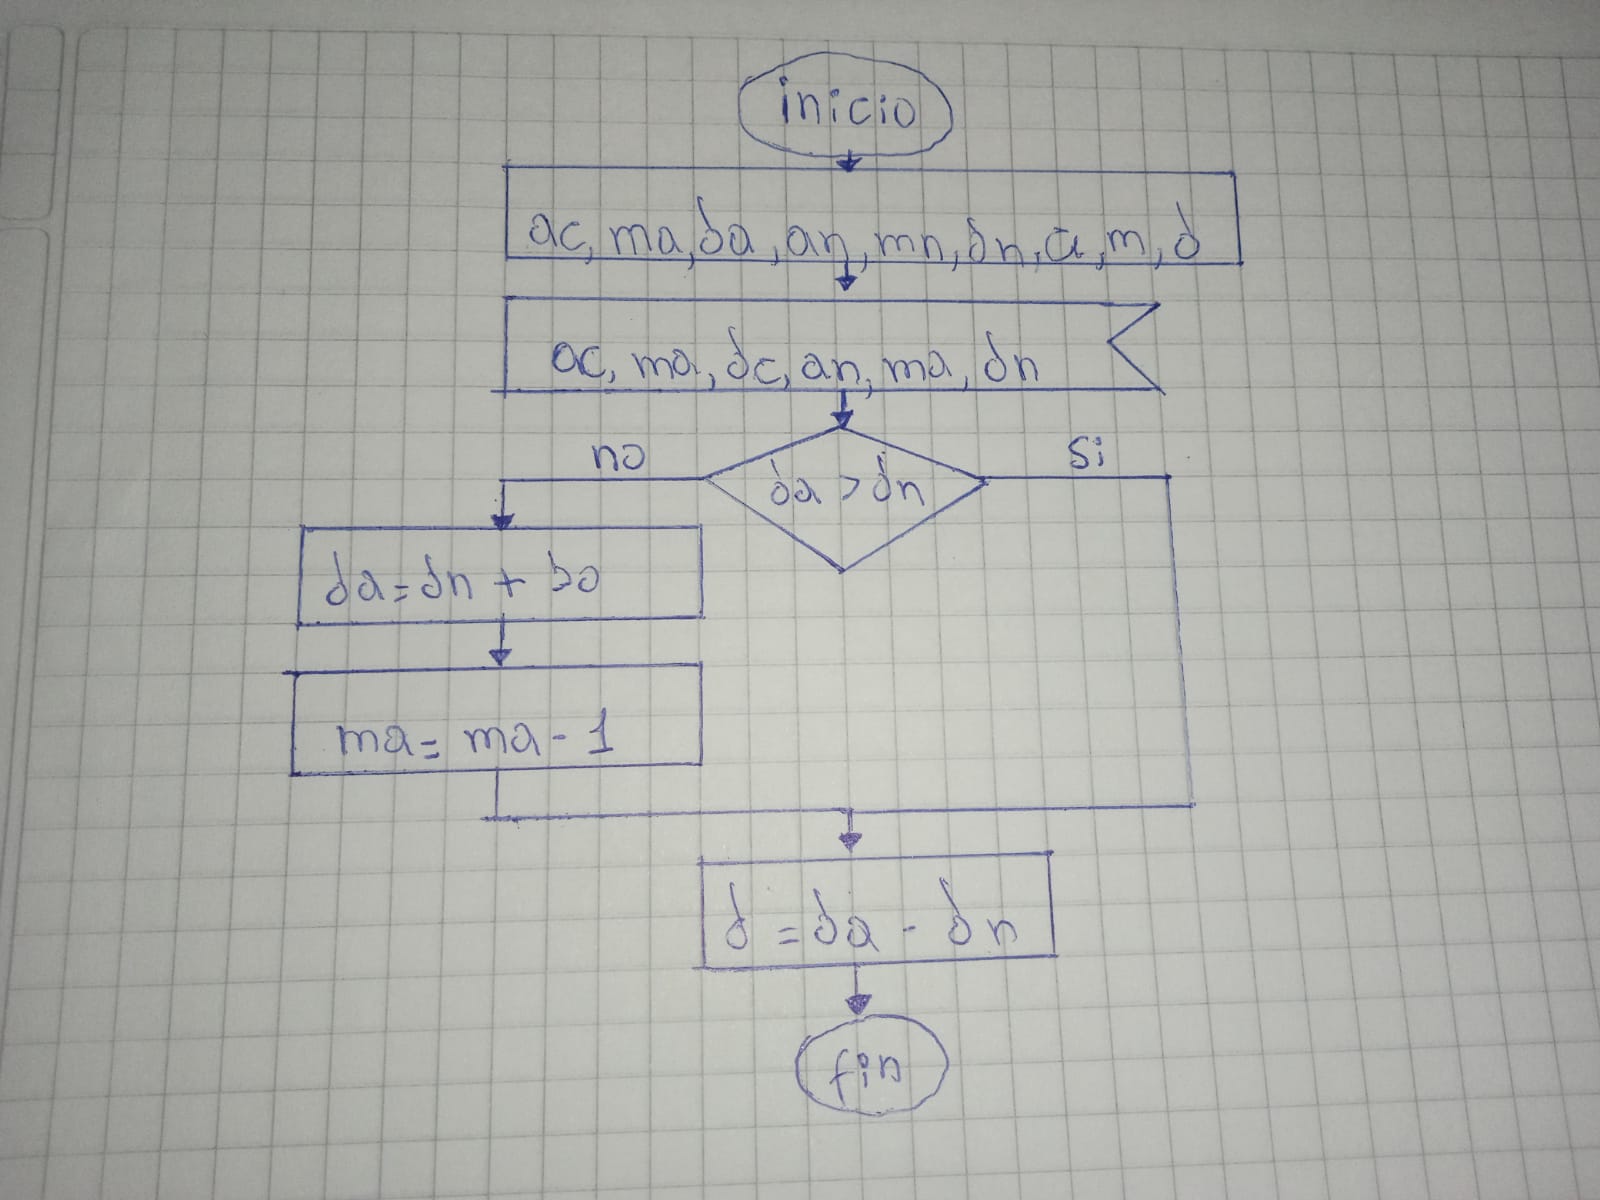 inicio
ac, ma, da, an, mn, dn, a, m, d
ac, ma, dc, an, ma, dn
no
si
da > dn
da = dn + 30
ma = ma - 1
d = da - dn
fin